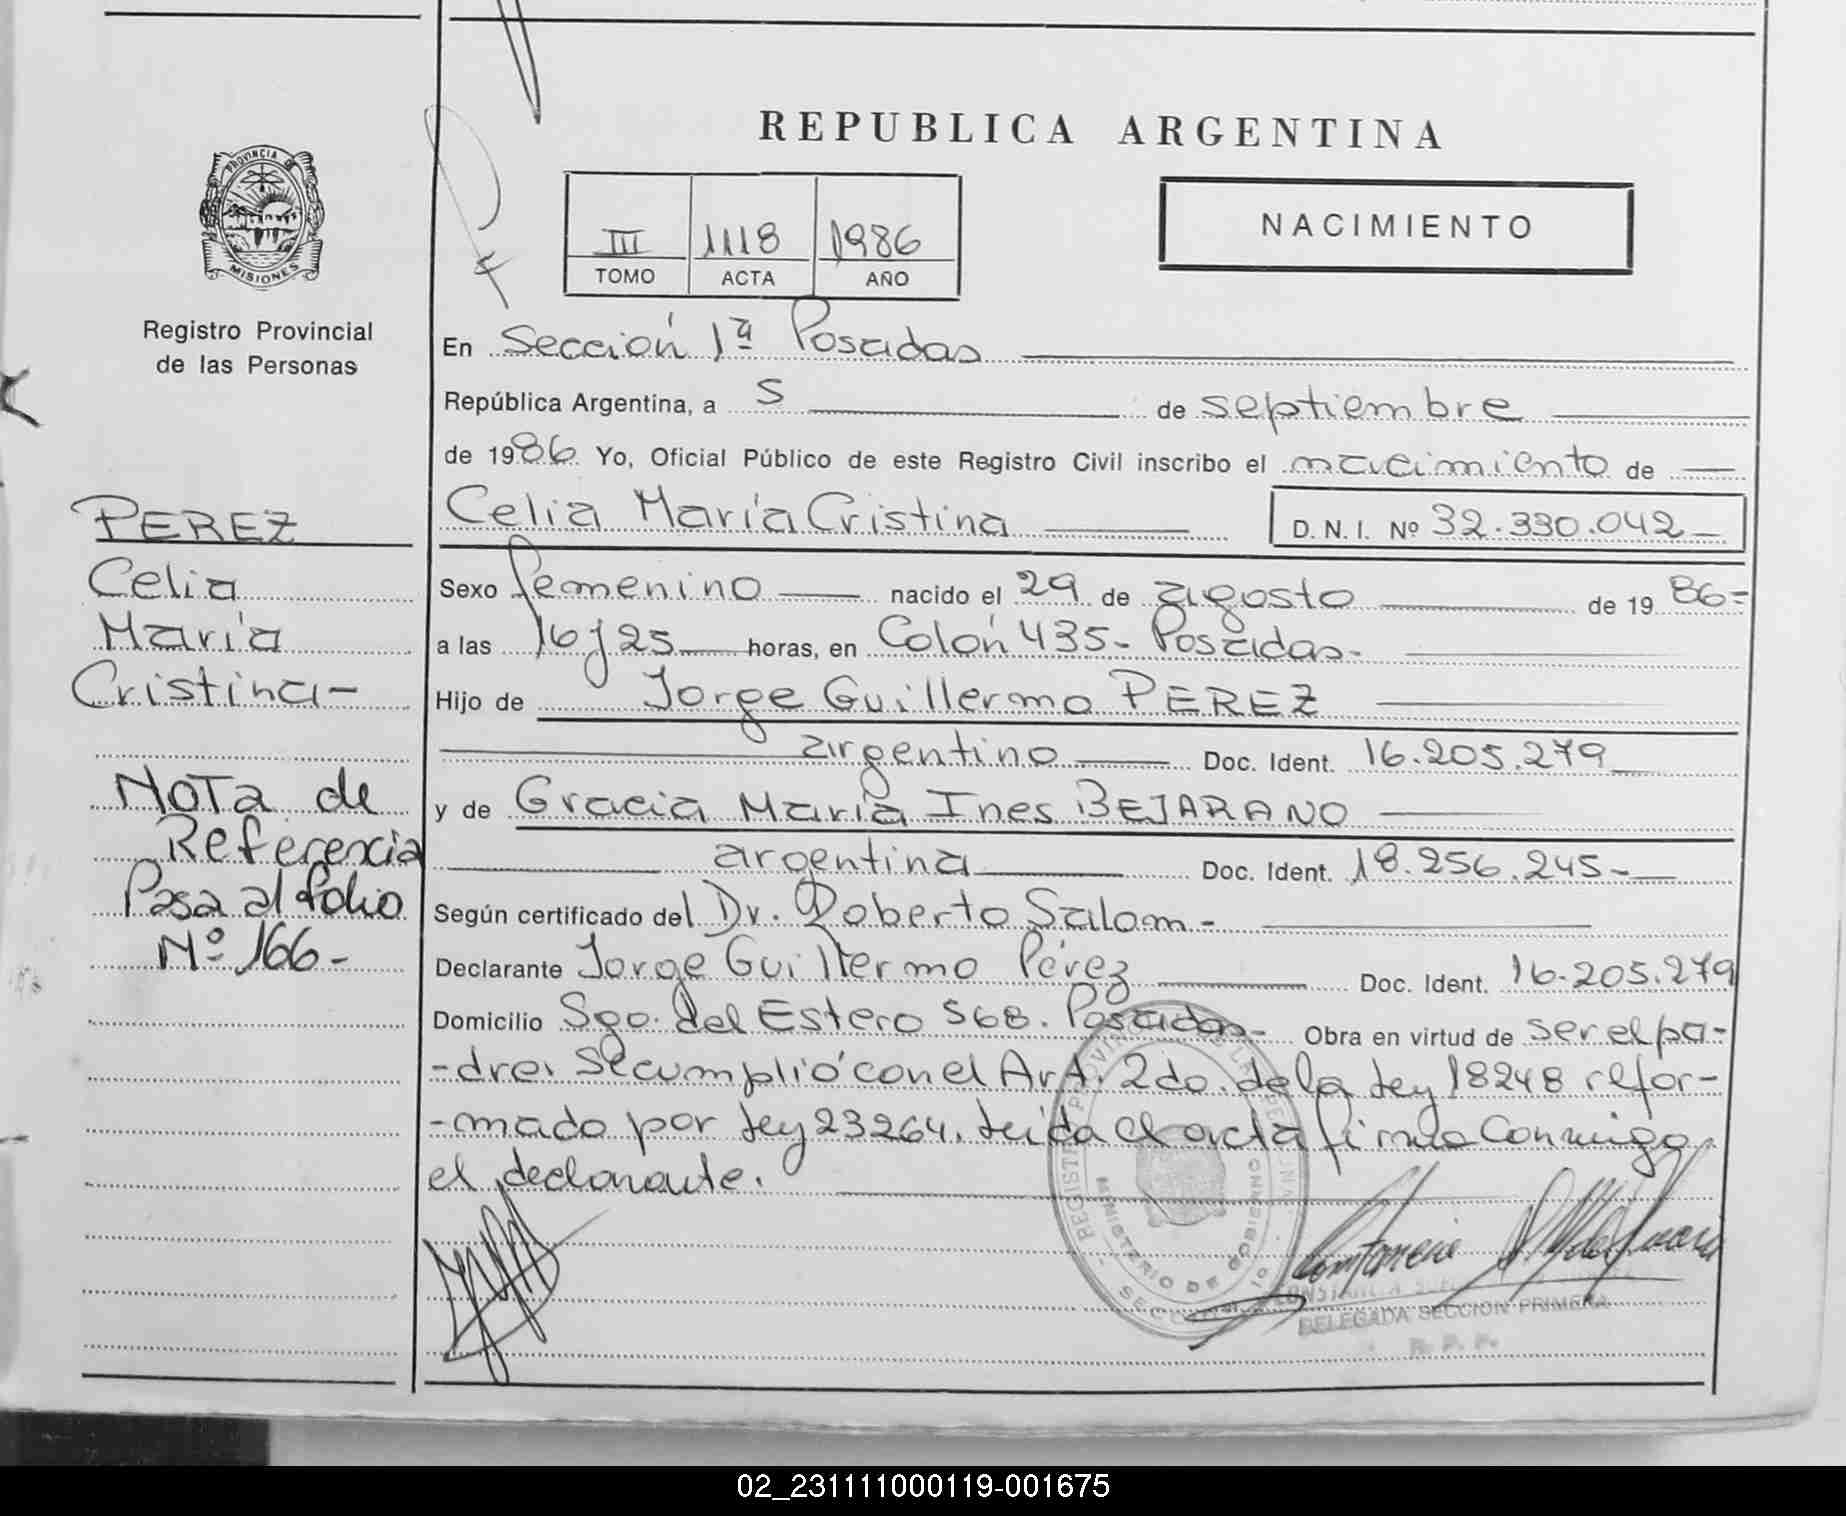 REPUBLICA ARGENTINA
PROVINCIA DE
MISIONES
Registro Provincial
de las Personas
III 1118 1986
TOMO ACTA AÑO
NACIMIENTO
En Sección 1ª Posadas
República Argentina, a 5 de septiembre
de 1986 Yo, Oficial Público de este Registro Civil inscribo el nacimiento de
Celia María Cristina D. N. I. Nº 32.330.042
Sexo femenino nacido el 29 de agosto de 1986=
a las 16 y 25 horas, en Colón 435- Posadas-
Hijo de Jorge Guillermo PEREZ
argentino Doc. Ident. 16.205.279
y de Gracia María Ines BEJARANO
argentina Doc. Ident. 18.256.245-
Según certificado del Dr. Roberto Salom-
Declarante Jorge Guillermo Pérez Doc. Ident. 16.205.279
Domicilio Sgo. del Estero 568. Posadas- Obra en virtud de ser el pa-
-dre. Se cumplió con el Art. 2do. de la Ley 18248 refor-
-mado por Ley 23264. Leída el acta firma conmigo
el declarante.
PEREZ
Celia
María
Cristina-
NOTA de
Referencia
Pasa al folio
Nº 166-
MINISTERIO DE GOBIERNO
DELEGADA SECCION PRIMERA
R. P. P.
02_231111000119-001675